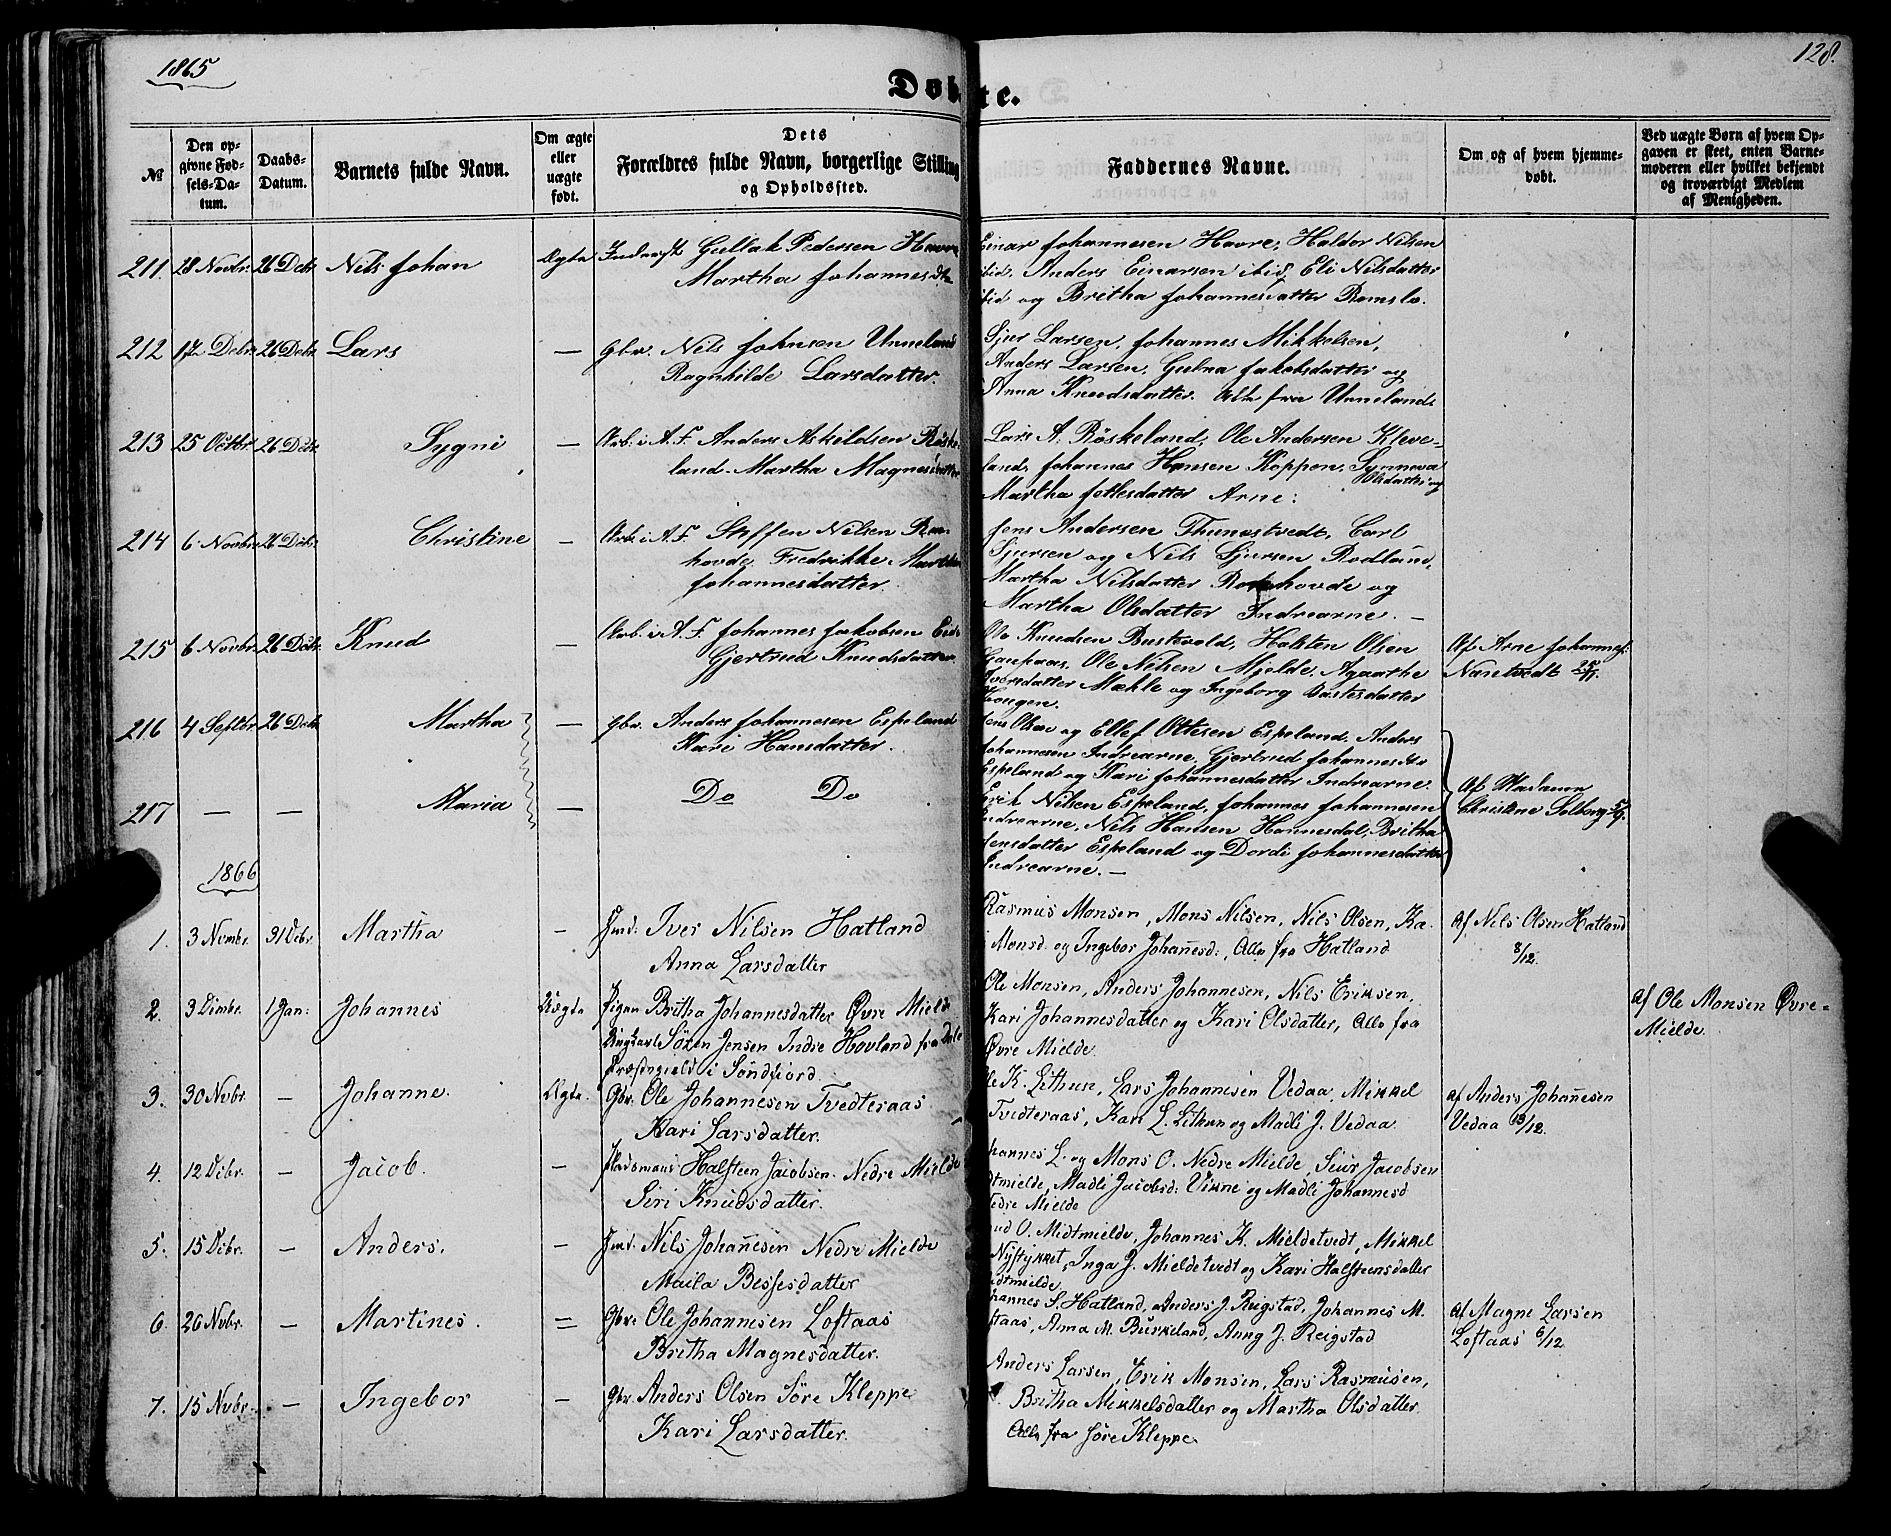 1865
128.
Døbte.
No
Den opgivne Fødsels-Datum.
Daabs-Datum.
Barnets fulde Navn.
Om ægte eller uægte født.
Dets Forældres fulde Navn, borgerlige Stilling og Opholdssted.
Faddernes Navne.
Om og af hvem hjemmedøbt.
Ved uægte Børn af hvem Opgaven er skeet, enten Barnemoderen eller hvilket bekjendt og troværdigt Medlem af Menigheden.
211. 28 Novbr. 26 Debr. Nils Johan Ægte Gullak Pedersen Havre
Martha Johannesdtr
Einar Johannesen Havre, Haldor Nilsen
ibid. Anders Einarsen ibid, Eli Nilsdatter
ibid og Britha Johannesdatter Romslo.
212 17 Debr. 26 Debr. Lars — Gbr. Nils Johnsen Unneland
Ragnhilde Larsdatter.
Sjur Larsen, Johannes Mikkelsen,
Anders Larsen, Gulna Jakobsdatter og
Anna Knudsdatter. Alle fra Unneland.
213 25 Octbr. 26 Debr. Sygni — Arb. i A. F. Anders Askildsen Røskeland. Martha Magnesdatter
Lars A. Röskeland, Ole Andersen Kleveland, Johannes Hansen Koppen, Synneva Olsdatter og
Martha Jetlesdatter Arne:
214 6 Novbr. 26 Debr. Christine — Arb. i A. F. Steffen Nilsen
hovde, Fredrikke Martha
Johannesdatter.
Jens Andersen Thunestvedt, Carl
Sjursen og Nils Sjursen Rodland,
Martha Nilsdatter og
Martha Olsdatter Indrearne. —
215 6 Novbr. 26 Debr. Knud — Arb. i A. F. Johannes Jakobsen Eide
Gjertrud Knudsdatter
Ole Knudsen Bustevold, Halsten Olsen
Gaupaas, Ole Nilsen Mjelde, Agaathe
Iversdatter Mæhle og Ingeborg
Haugen.
Af Arne Johannes:
Navetvedt 25/11.
216 4 Septbr. 26 Debr. Martha — Gbr. Anders Johannesen Espeland
Kari Hansdatter.
Jens Olsen og Ellef Ottesen Espeland. Anders
Johannesen Indrearne, Gjertrud Johannesdtr
Espeland og Kari Johannesdatter Indrearne.
217 — — Maria — Do Do
Erik Nilsen Espeland, Johannes Johannesen
Indrearne, Nils Hansen Hannesdal, Britha
Jensdatter Espeland og Dordi Johannesdatter
Indrearne. —
Af Madame
Christine Solberg 5/9.
1866
1. 3 Novmbr. 31 Debr. Martha — Ind: Iver Nilsen Hatland
Anna Larsdatter
Rasmus Monsen, Mons Nilsen, Nils Olsen, Ka.
Monsd. og Ingebor Johanesd:, Alle fra Hatland
af Nils Olsen Hatland
8/12.
2. 3 Dcmbr. 1 Jan: Johannes Uægte Pigen Britha Johannesdatter Øvre Mielde
Ungkarl Sören Jensen Indre Hovland fra Dale
Præstegield i Söndfiord
Ole Monsen, Anders Johannesen, Nils Eriksen,
Kari Johannesdatter og Kari Olsdatter, Alle fra
Øvre Mielde.
af Ole Monsen Øvre-
Mielde.
3. 30 Nvbr. — Johanne. Ægte Gbr. Ole Johannesen Tvedteraas
Kari Larsdatter.
Ole K. Lithun, Lars Johannesen Vedaa, Mikkel
Tvedteraas, Kari L. Lithun og Madli J. Vedaa.
af Anders Johannesen
Vedaa 13/12.
4. 12 Dcbr. — Jacob. — Halsteen Jacobsen Nedre Mielde
Siri Knudsdatter.
Johannes L. og Mons O. Nedre Mielde, Siur Jacobsen
Midtmielde, Madli Jacobsd: Vikne og Madli Johannesd
Nedre Mielde
5. 15 Dcbr. — Anders. — Ind. Nils Johannesen Nedre Mielde
Maila Bessesdatter
Knud O. Midtmielde, Johannes K. Mieldetvedt, Mikkel
Nystykket, Inga J. Mieldetvedt og Kari Halsteensdatter
Midtmielde
6. 26 Nvbr. — Martines. = Gbr. Ole Johannesen Loftaas
Britha Magnesdatter.
Johannes S. Hatland, Anders J. Reigstad, Johannes M.
Loftaas, Anna M. Burkeland, Anna J. Reigstad
af Magne Larsen
Loftaas 6/12
7. 15 Nvbr. — Ingebor — Gbr. Anders Olsen Søre Kleppe
Kari Larsdatter.
Anders Larsen, Erik Monsen, Lars Rasmusen,
Britha Mikkelsdatter og Martha Olsdatter.
Alle fra Søre Kleppe